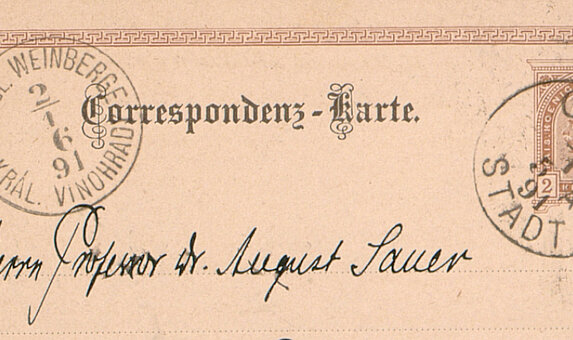 WEINBERGE
2/1
6
91
KRÁL. VINOHRAD
Correspondenz-Karte.
2
91
STADT
Professor Dr. August Sauer